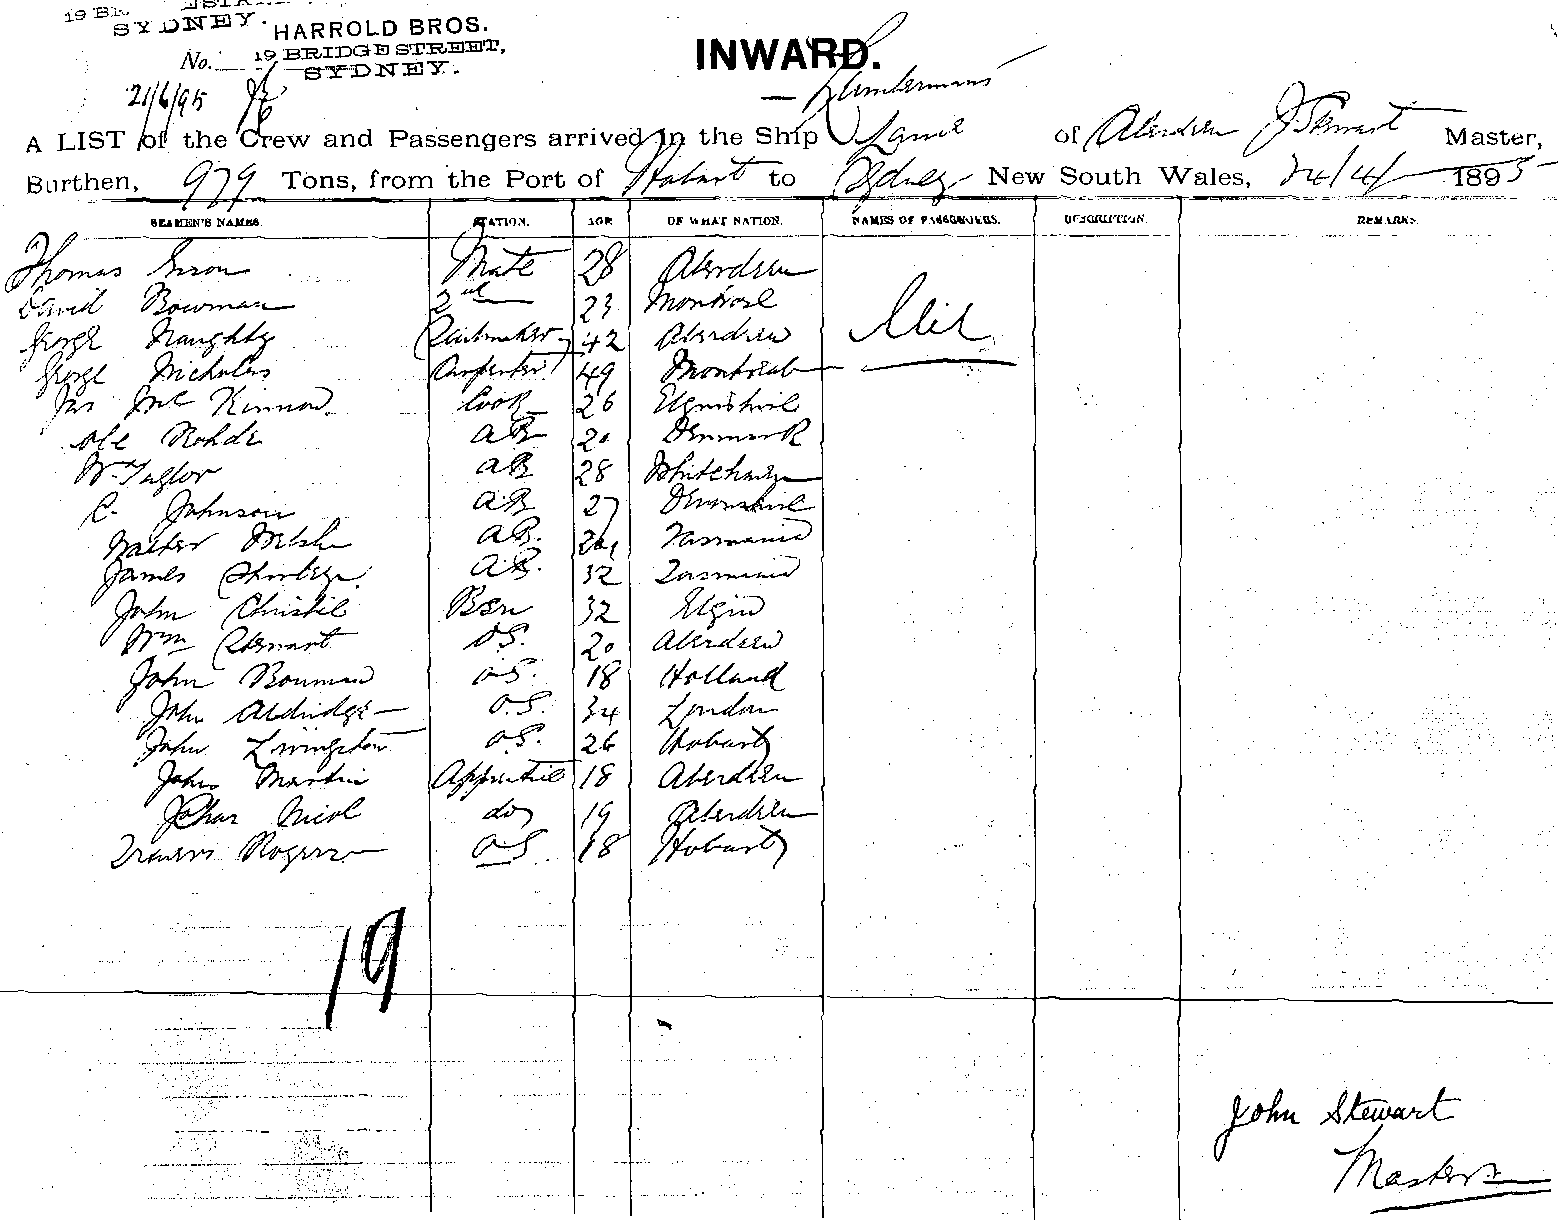 19 BR
SYDNEY.
HARROLD BROS.
No. 19 BRIDGE STREET,
SYDNEY.
INWARD.
21/6/95
A LIST of the Crew and Passengers arrived in the Ship Lane of Aberdeen J Stewart Master,
Burthen, 979 Tons, from the Port of Hobart to Sydney New South Wales, 24/4/ 1895
SEAMEN'S NAMES. STATION. AGE OF WHAT NATION. NAMES OF PASSENGERS. DESCRIPTION. REMARKS.
Thomas Mate 28 Aberdeen
David Bowman 2nd 23 Montrose
George Naughty Sailmaker 42 Aberdeen
George Nicholas Carpenter 49 Montrose
Jas Mc Kinnon Cook 26 Elginshire
Ole Rohde AB 20 Denmark
Wm Taylor AB 28 Whitehaven
C. Johnson AB 27 Devonshire
Walter Welsh AB. Tasmania
James AB. 32 Tasmania
John Christie Bsn 32 Elgin
Wm Stewart OS. 20 Aberdeen
John Bouman OS. 18 Holland
John Aldridge O.S. 34 London
John Livingston OS. 26 Hobart
John Martin Apprentice 18 Aberdeen
Nicol do 19 Aberdeen
Rogers OS 18 Hobart
19
John Stewart
Master